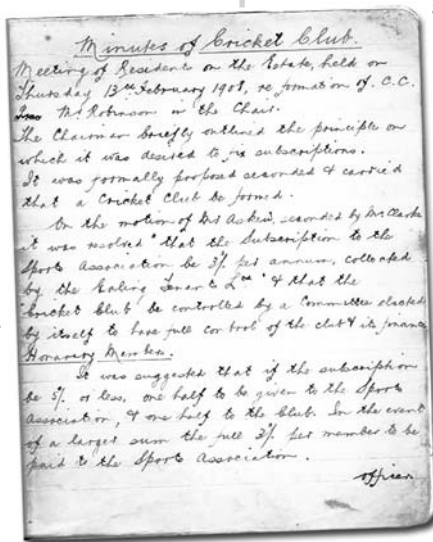 Minutes of Cricket Club.
Meeting of Residents on the Estate, held on
Thursday 13th February 1908, re formation of C.C.
Mr Robinson in the Chair.
The Chairman briefly outlined the principle on
which it was desired to fix subscriptions.
It was formally proposed seconded & carried
that a Cricket Club be formed.
On the motion of Mr Askew, seconded by Mr Clarke
it was resolved that the Subscription to the
Sports Association be 3/- per annum, collected
by the Ealing Tenants Ltd & that the
Cricket Club be controlled by a Committee elected
by itself to have full control of the club & its finances
Honorary Members.
It was suggested that if the subscription
be 5/- or less, one half to be given to the Sports
Association, & one half to the Club. In the event
of a larger sum the full 3/- per member to be
paid to the Sports Association.
Officers